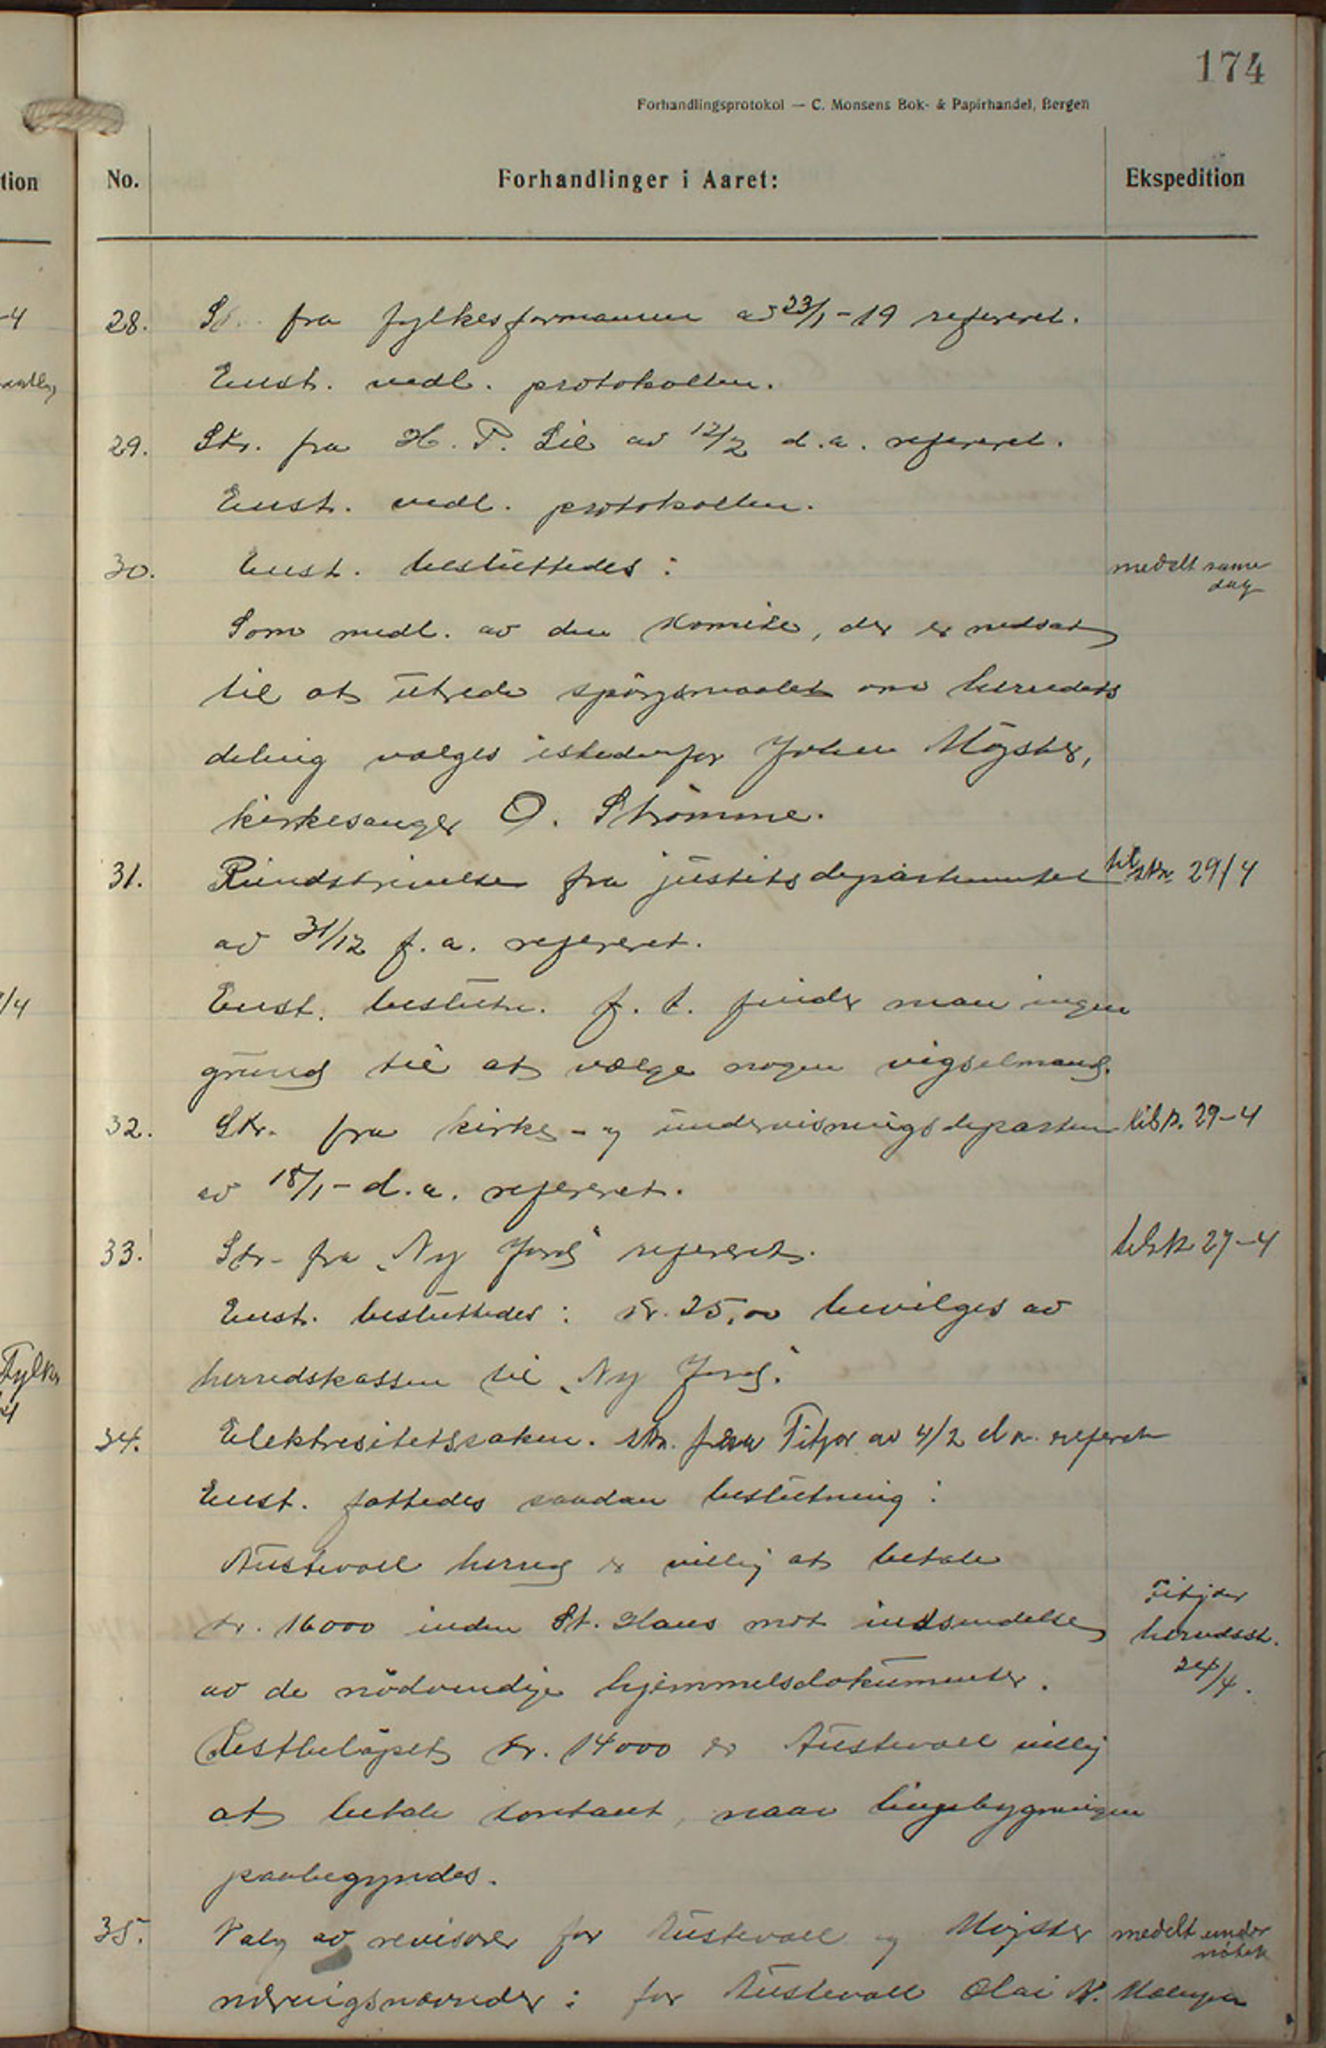 174
Forhandlingsprotokol — C. Monsens Bok- & Papirhandel, Bergen
tion
No.
Forhandlinger i Aaret:
Ekspedition
28. fra fylkesformannen av 23/1-19 refereret.
Enst. vedl. protokollen.
29. Skr. fra H. P. Lie av 12/2 d.a. refereret.
Enst. vedl. protokollen.
30. Enst. besluttedes:
medelt same
dag
Som medl. av den komite, der er nedsat
til at utrede spørgsmaalet om herredets
deling vælges istedenfor Johan Møgster,
kirkesanger O. Strømme.
31. Rundskrivelse fra justitsdepartementet
tilskr. 29/4
av 31/12 f.a. refereret.
Enst. beslutn. f.t. finder man ingen
grund til at vælge nogen vigselmand.
32. Skr. fra kirke- og undervisningsdepartem
tilsk. 29-4
av 18/1- d.a. refereret.
33. Skr. fra „Ny Jord" refereret.
tilsk 27-4
Enst. besluttedes: kr. 25,00 bevilges av
herredskassen til „Ny Jord".
34. Elektresitetssaken. skr. fra Fitjar av 4/2 d.a. referet
Enst. fattedes saadan beslutning:
Austevoll herred er villig at betale
kr. 16000 inden St. Hans mot indsendelse
Fitjar
herredsst.
24/4.
av de nødvendige hjemmelsdokumenter.
Restbeløpet kr. 14000 er Austevoll villig
at betale kontant, naar linjebygningen
paabegyndes.
35. Valg av revisorer for Austevoll og Møgster
medelt under
møtet
næringsnævnder: for Austevoll Olai N.